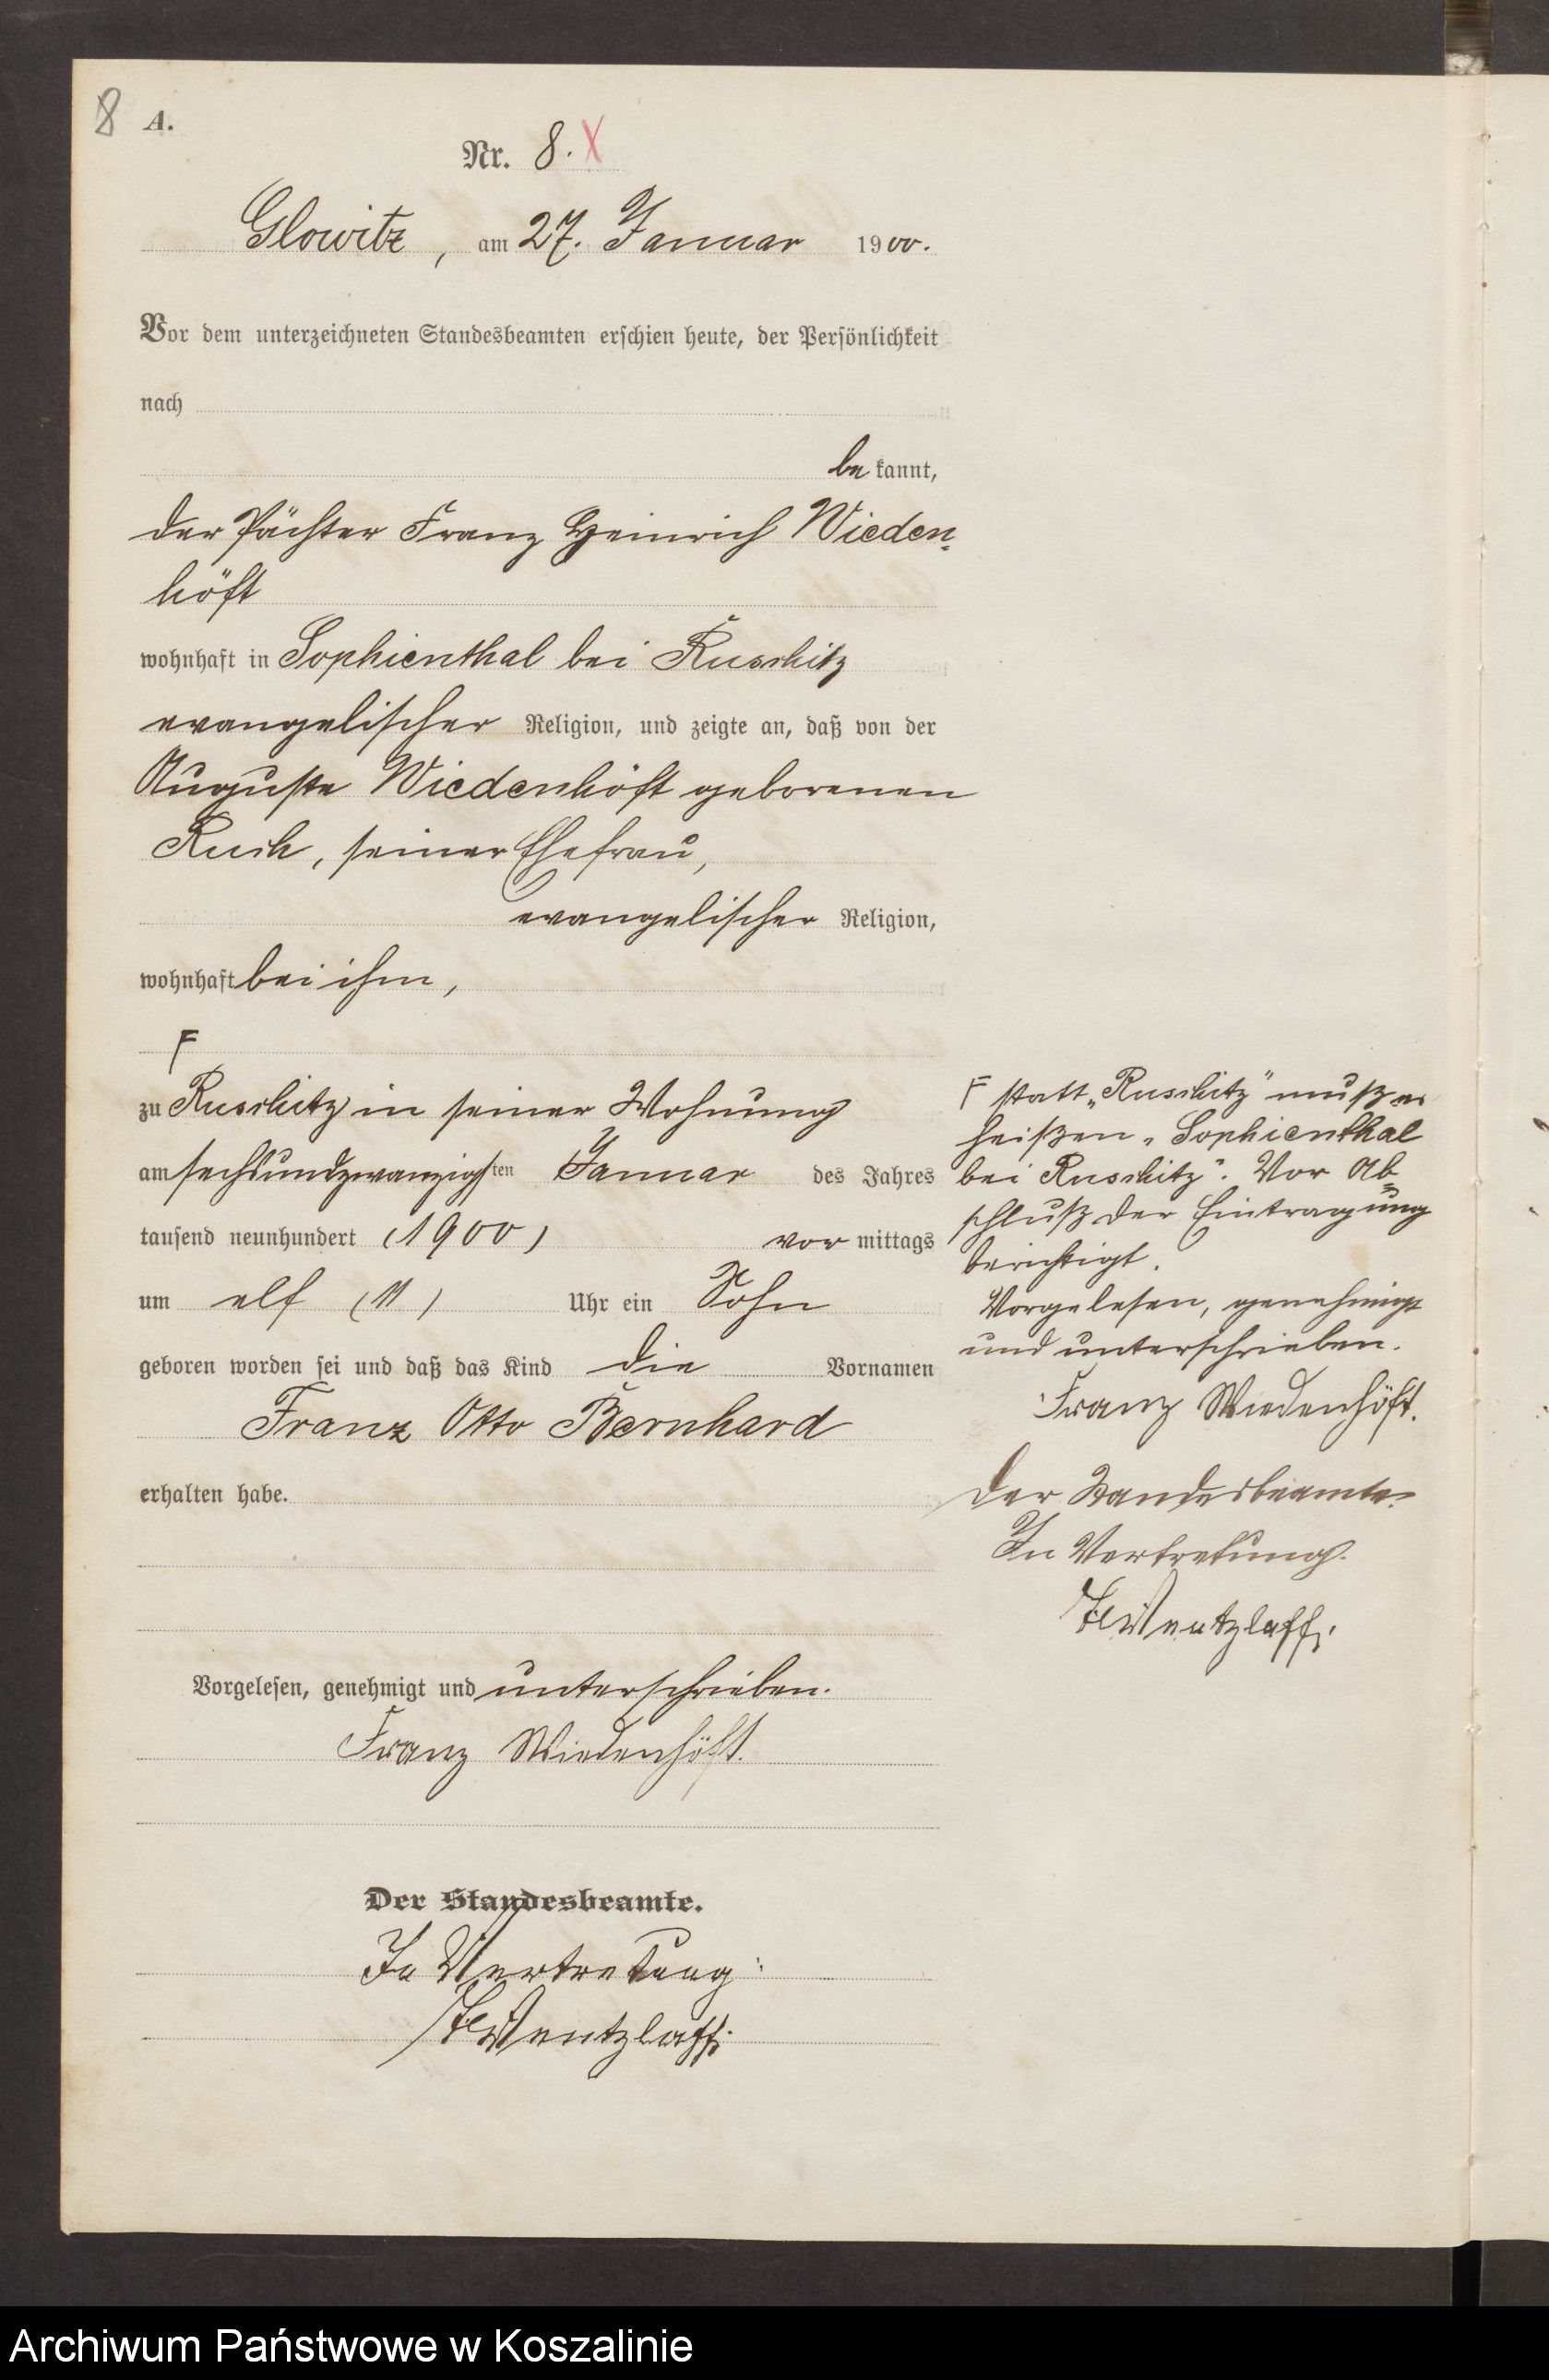 8 A.
Nr. 8. X
Glowitz, am 27. Januar 1900.
Vor dem unterzeichneten Standesbeamten erschien heute, der Persönlichkeit
nach
be kannt,
der Pächter Franz Heinrich Wieden-
höft
wohnhaft in Sophienthal bei Ruschitz
evangelischer Religion, und zeigte an, daß von der
Auguste Wiedenhöft geborenen
Kusch, seiner Ehefrau,
evangelischer Religion,
wohnhaft bei ihm,
F
zu Ruschitz in seiner Wohnung
am sechsundzwanzigsten Januar des Jahres
tausend neunhundert (1900) vor mittags
um elf (11) Uhr ein Sohn
geboren worden sei und daß das Kind die Vornamen
Franz Otto Bernhard
erhalten habe.
Vorgelesen, genehmigt und unterschrieben.
Franz Wiedenhöft.
Der Standesbeamte.
In Vertretung:
Wentzlaff.
F statt „Ruschitz" muß es
heißen „Sophienthal
bei Ruschitz". Vor Ab-
schluß der Eintragung
berichtigt.
Vorgelesen, genehmigt
und unterschrieben.
Franz Wiedenhöft.
Der Standesbeamte.
In Vertretung.
Wentzlaff.
Archiwum Państwowe w Koszalinie